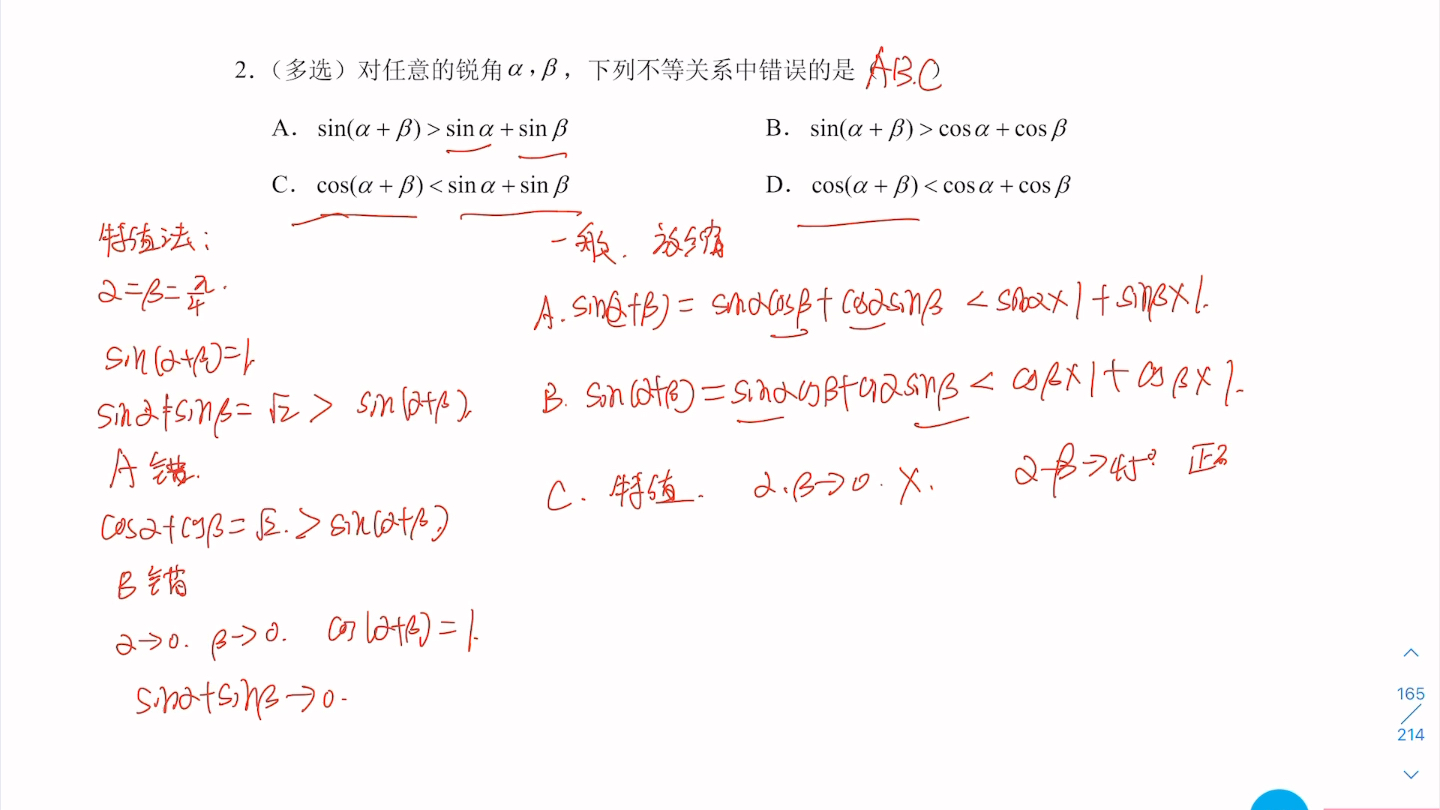 2.（多选）对任意的锐角α，β，下列不等关系中错误的是 ABC
A. sin(α + β) > sin α + sin β
B. sin(α + β) > cos α + cos β
C. cos(α + β) < sin α + sin β
D. cos(α + β) < cos α + cos β
特值法：
α = β = π/4.
sin(α+β)=1.
sinα+sinβ=√2 > sin(α+β).
A 错.
cosα+cosβ=√2. > sin(α+β)
B 错
α→0. β→0. cos(α+β)=1.
sinα+sinβ→0.
一般. 放缩
A. sin(α+β) = sinαcosβ+cosαsinβ < sinα×1+sinβ×1.
B. sin(α+β)=sinαcosβ+cosαsinβ < cosβ×1+cosβ×1.
C. 特值. α.β→0. ×. →45°
165
214